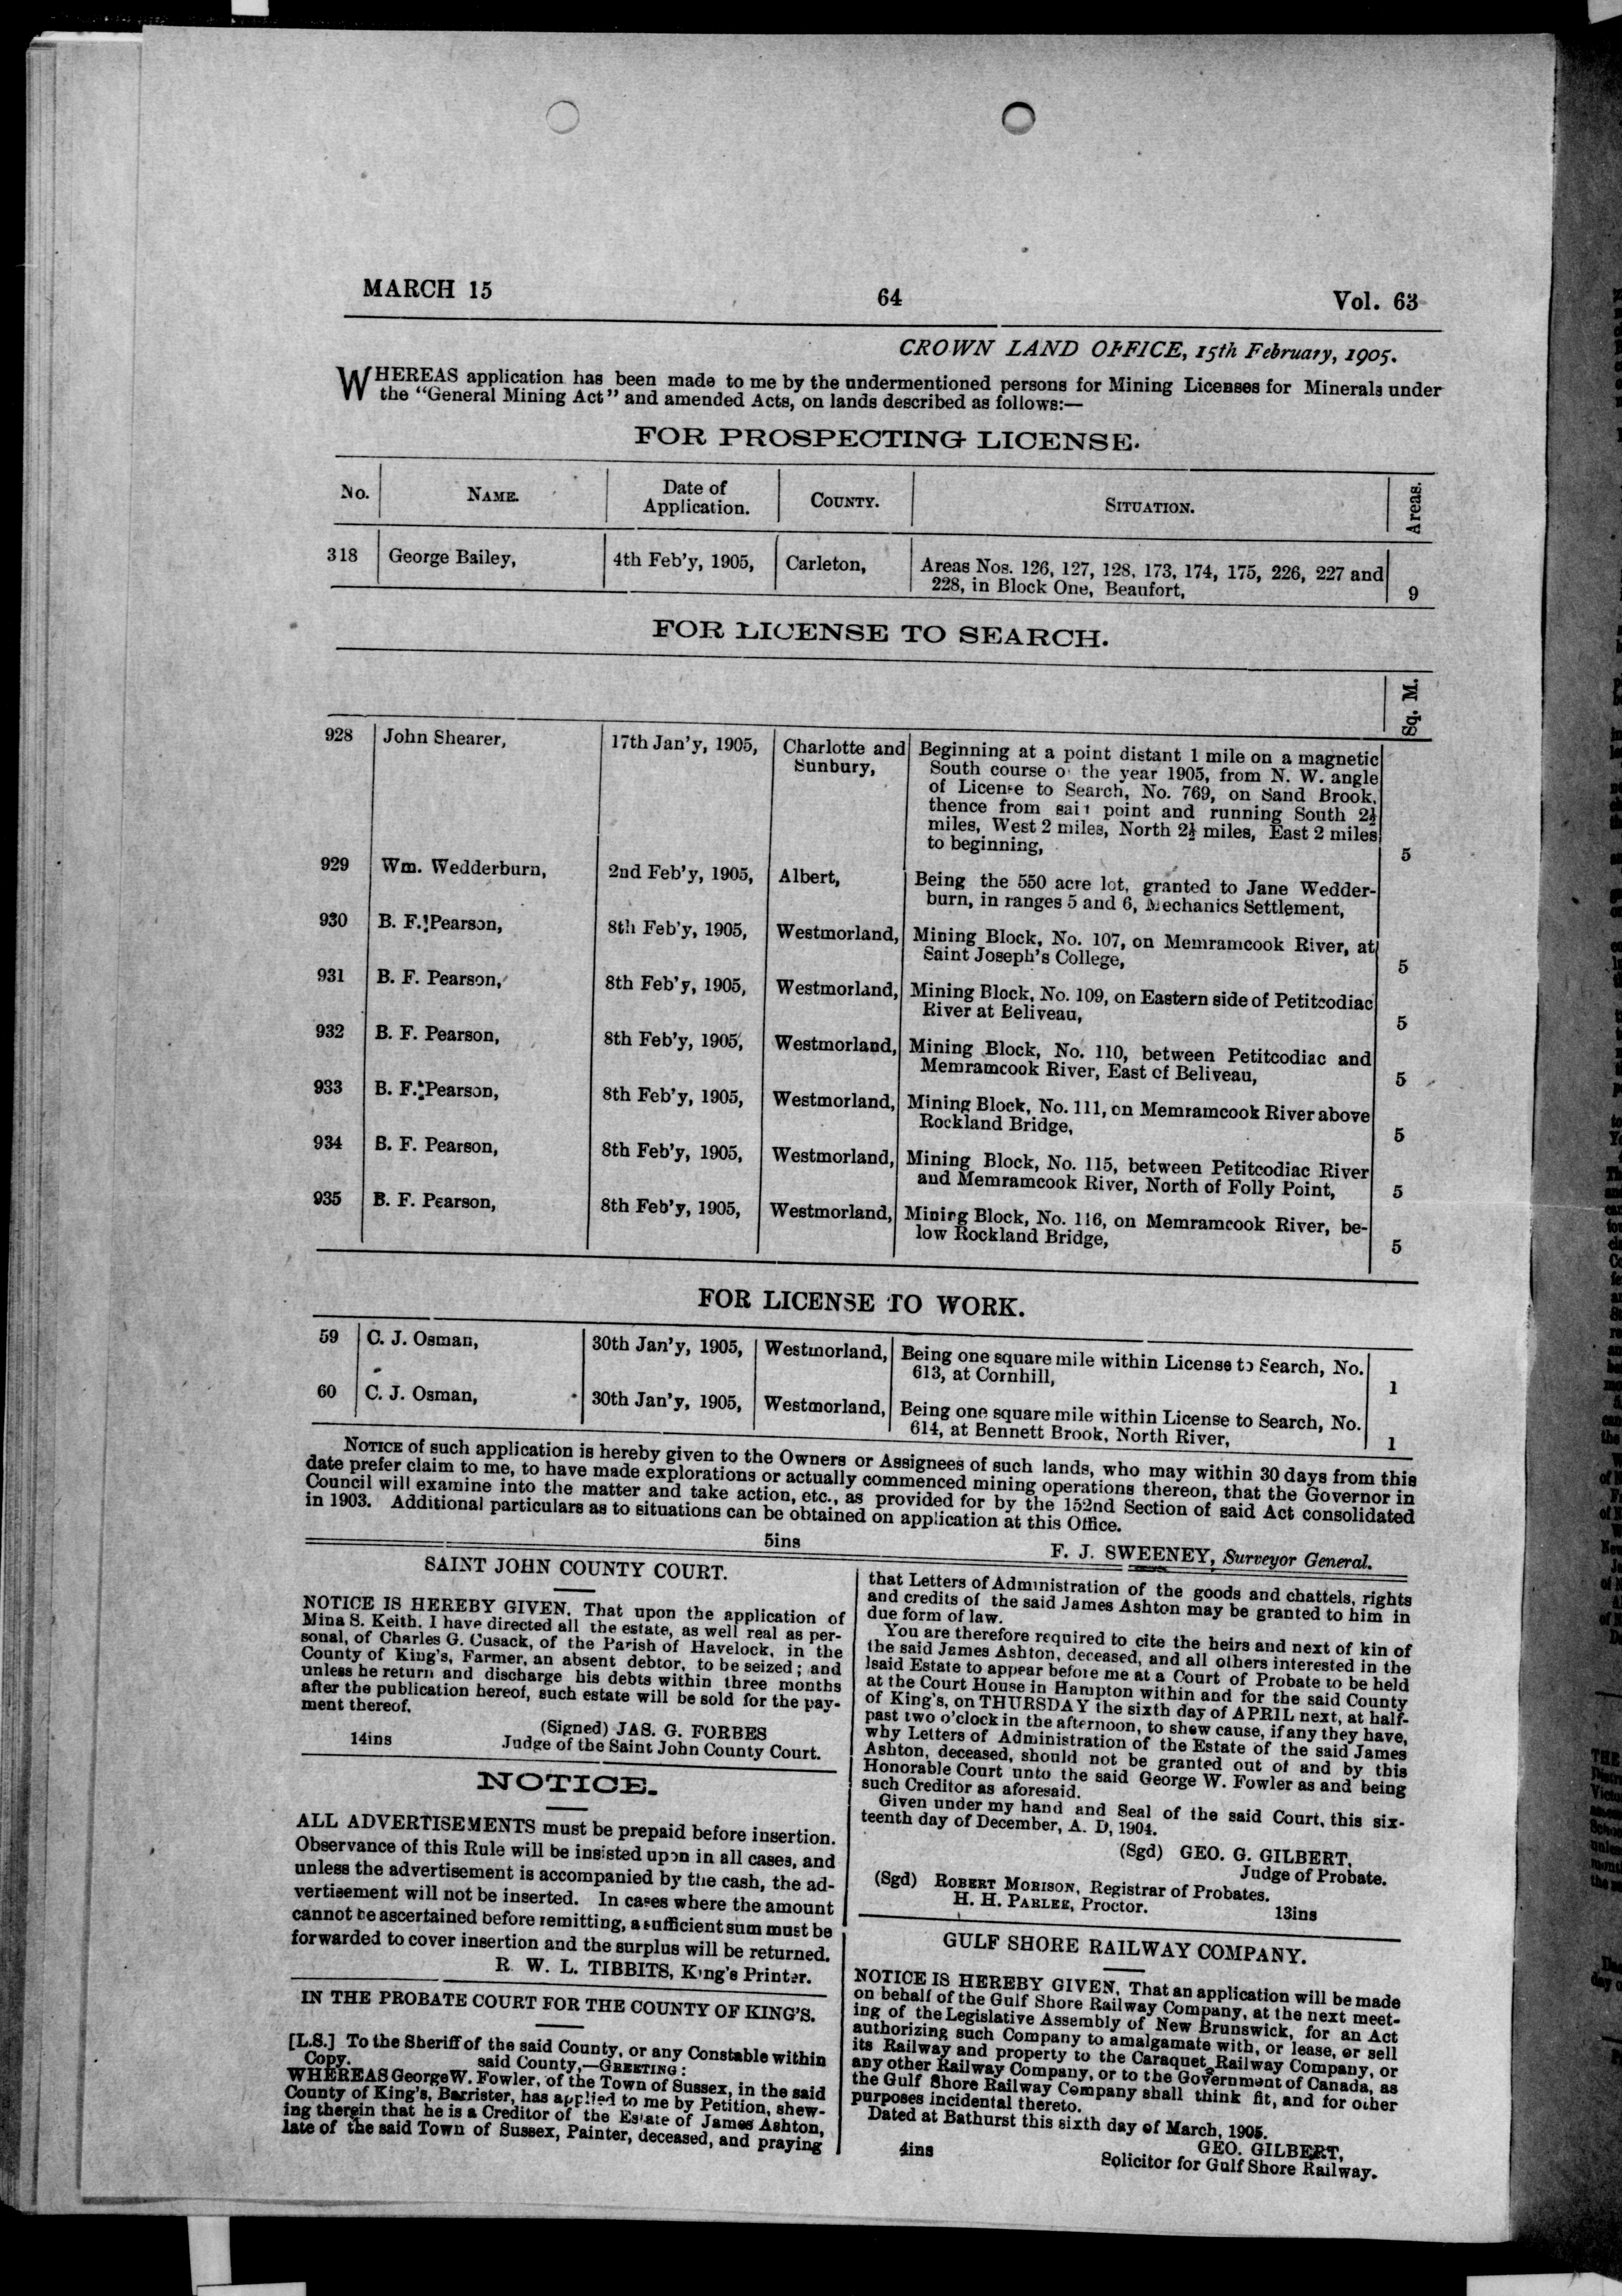 MARCH 15 64 Vol. 63
CROWN LAND OFFICE, 15th February, 1905.
WHEREAS application has been made to me by the undermentioned persons for Mining Licenses for Minerals under
the "General Mining Act" and amended Acts, on lands described as follows:—
FOR PROSPECTING LICENSE.
No. NAME. Date of Application. COUNTY. SITUATION. Areas.
318 George Bailey, 4th Feb'y, 1905, Carleton, Areas Nos. 126, 127, 128, 173, 174, 175, 226, 227 and
228, in Block One, Beaufort, 9
FOR LICENSE TO SEARCH.
Sq. M.
928 John Shearer, 17th Jan'y, 1905, Charlotte and Beginning at a point distant 1 mile on a magnetic
Sunbury, South course o' the year 1905, from N. W. angle
of License to Search, No. 769, on Sand Brook,
thence from said point and running South 2½
miles, West 2 miles, North 2½ miles, East 2 miles
to beginning, 5
929 Wm. Wedderburn, 2nd Feb'y, 1905, Albert, Being the 550 acre lot, granted to Jane Wedder-
burn, in ranges 5 and 6, Mechanics Settlement,
930 B. F. Pearson, 8th Feb'y, 1905, Westmorland, Mining Block, No. 107, on Memramcook River, at
Saint Joseph's College, 5
931 B. F. Pearson, 8th Feb'y, 1905, Westmorland, Mining Block, No. 109, on Eastern side of Petitcodiac
River at Beliveau, 5
932 B. F. Pearson, 8th Feb'y, 1905, Westmorland, Mining Block, No. 110, between Petitcodiac and
Memramcook River, East of Beliveau, 5
933 B. F. Pearson, 8th Feb'y, 1905, Westmorland, Mining Block, No. 111, on Memramcook River above
Rockland Bridge, 5
934 B. F. Pearson, 8th Feb'y, 1905, Westmorland, Mining Block, No. 115, between Petitcodiac River
and Memramcook River, North of Folly Point, 5
935 B. F. Pearson, 8th Feb'y, 1905, Westmorland, Mining Block, No. 116, on Memramcook River, be-
low Rockland Bridge, 5
FOR LICENSE TO WORK.
59 C. J. Osman, 30th Jan'y, 1905, Westmorland, Being one square mile within License to Search, No.
613, at Cornhill, 1
60 C. J. Osman, 30th Jan'y, 1905, Westmorland, Being one square mile within License to Search, No.
614, at Bennett Brook, North River, 1
NOTICE of such application is hereby given to the Owners or Assignees of such lands, who may within 30 days from this
date prefer claim to me, to have made explorations or actually commenced mining operations thereon, that the Governor in
Council will examine into the matter and take action, etc., as provided for by the 152nd Section of said Act consolidated
in 1903. Additional particulars as to situations can be obtained on application at this Office.
5ins F. J. SWEENEY, Surveyor General.
SAINT JOHN COUNTY COURT.
NOTICE IS HEREBY GIVEN, That upon the application of
Mina S. Keith, I have directed all the estate, as well real as per-
sonal, of Charles G. Cusack, of the Parish of Havelock, in the
County of King's, Farmer, an absent debtor, to be seized; and
unless he return and discharge his debts within three months
after the publication hereof, such estate will be sold for the pay-
ment thereof.
(Signed) JAS. G. FORBES
14ins Judge of the Saint John County Court.
NOTICE.
ALL ADVERTISEMENTS must be prepaid before insertion.
Observance of this Rule will be insisted upon in all cases, and
unless the advertisement is accompanied by the cash, the ad-
vertisement will not be inserted. In cases where the amount
cannot be ascertained before remitting, a sufficient sum must be
forwarded to cover insertion and the surplus will be returned.
R. W. L. TIBBITS, King's Printer.
IN THE PROBATE COURT FOR THE COUNTY OF KING'S.
[L.S.] To the Sheriff of the said County, or any Constable within
Copy. said County,—GREETING:
WHEREAS George W. Fowler, of the Town of Sussex, in the said
County of King's, Barrister, has applied to me by Petition, shew-
ing therein that he is a Creditor of the Estate of James Ashton,
late of the said Town of Sussex, Painter, deceased, and praying
that Letters of Administration of the goods and chattels, rights
and credits of the said James Ashton may be granted to him in
due form of law.
You are therefore required to cite the heirs and next of kin of
the said James Ashton, deceased, and all others interested in the
said Estate to appear before me at a Court of Probate to be held
at the Court House in Hampton within and for the said County
of King's, on THURSDAY the sixth day of APRIL next, at half-
past two o'clock in the afternoon, to shew cause, if any they have,
why Letters of Administration of the Estate of the said James
Ashton, deceased, should not be granted out of and by this
Honorable Court unto the said George W. Fowler as and being
such Creditor as aforesaid.
Given under my hand and Seal of the said Court, this six-
teenth day of December, A. D, 1904.
(Sgd) GEO. G. GILBERT,
Judge of Probate.
(Sgd) ROBERT MORISON, Registrar of Probates.
H. H. PARLEE, Proctor. 13ins
GULF SHORE RAILWAY COMPANY.
NOTICE IS HEREBY GIVEN, That an application will be made
on behalf of the Gulf Shore Railway Company, at the next meet-
ing of the Legislative Assembly of New Brunswick, for an Act
authorizing such Company to amalgamate with, or lease, or sell
its Railway and property to the Caraquet Railway Company, or
any other Railway Company, or to the Government of Canada, as
the Gulf Shore Railway Company shall think fit, and for other
purposes incidental thereto.
Dated at Bathurst this sixth day of March, 1905.
GEO. GILBERT,
4ins Solicitor for Gulf Shore Railway.